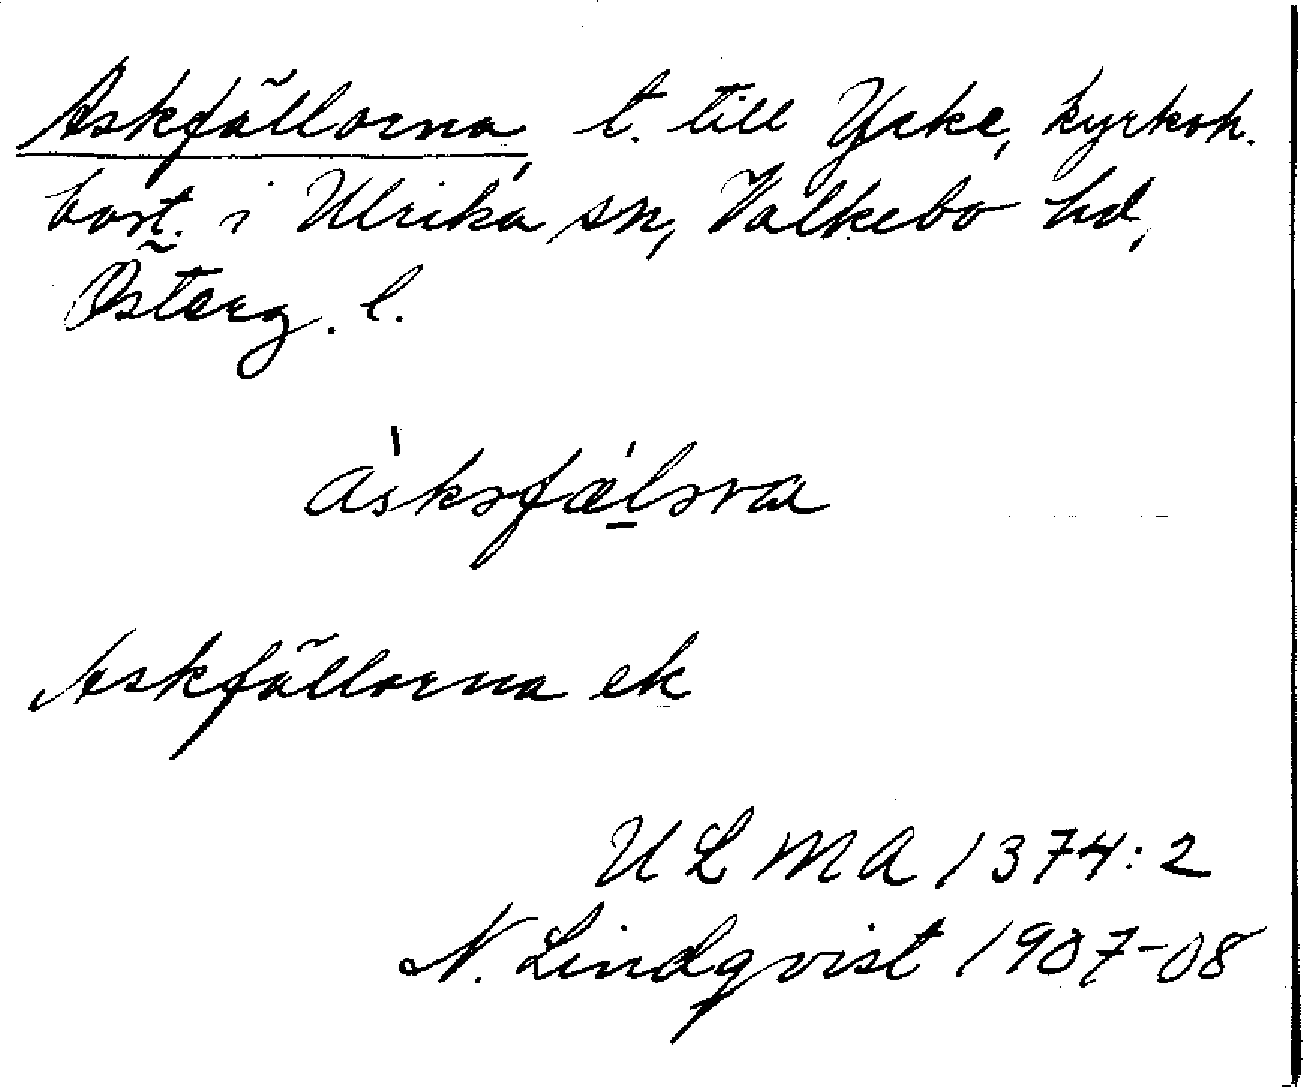 Askfällorna, t. till Ycke, kyrkoh.
bost. i Ulrika sn, Valkebo hd,
Österg. l.
Askfällorna ek
ULMA 1374:2
N. Lindqvist 1907-08